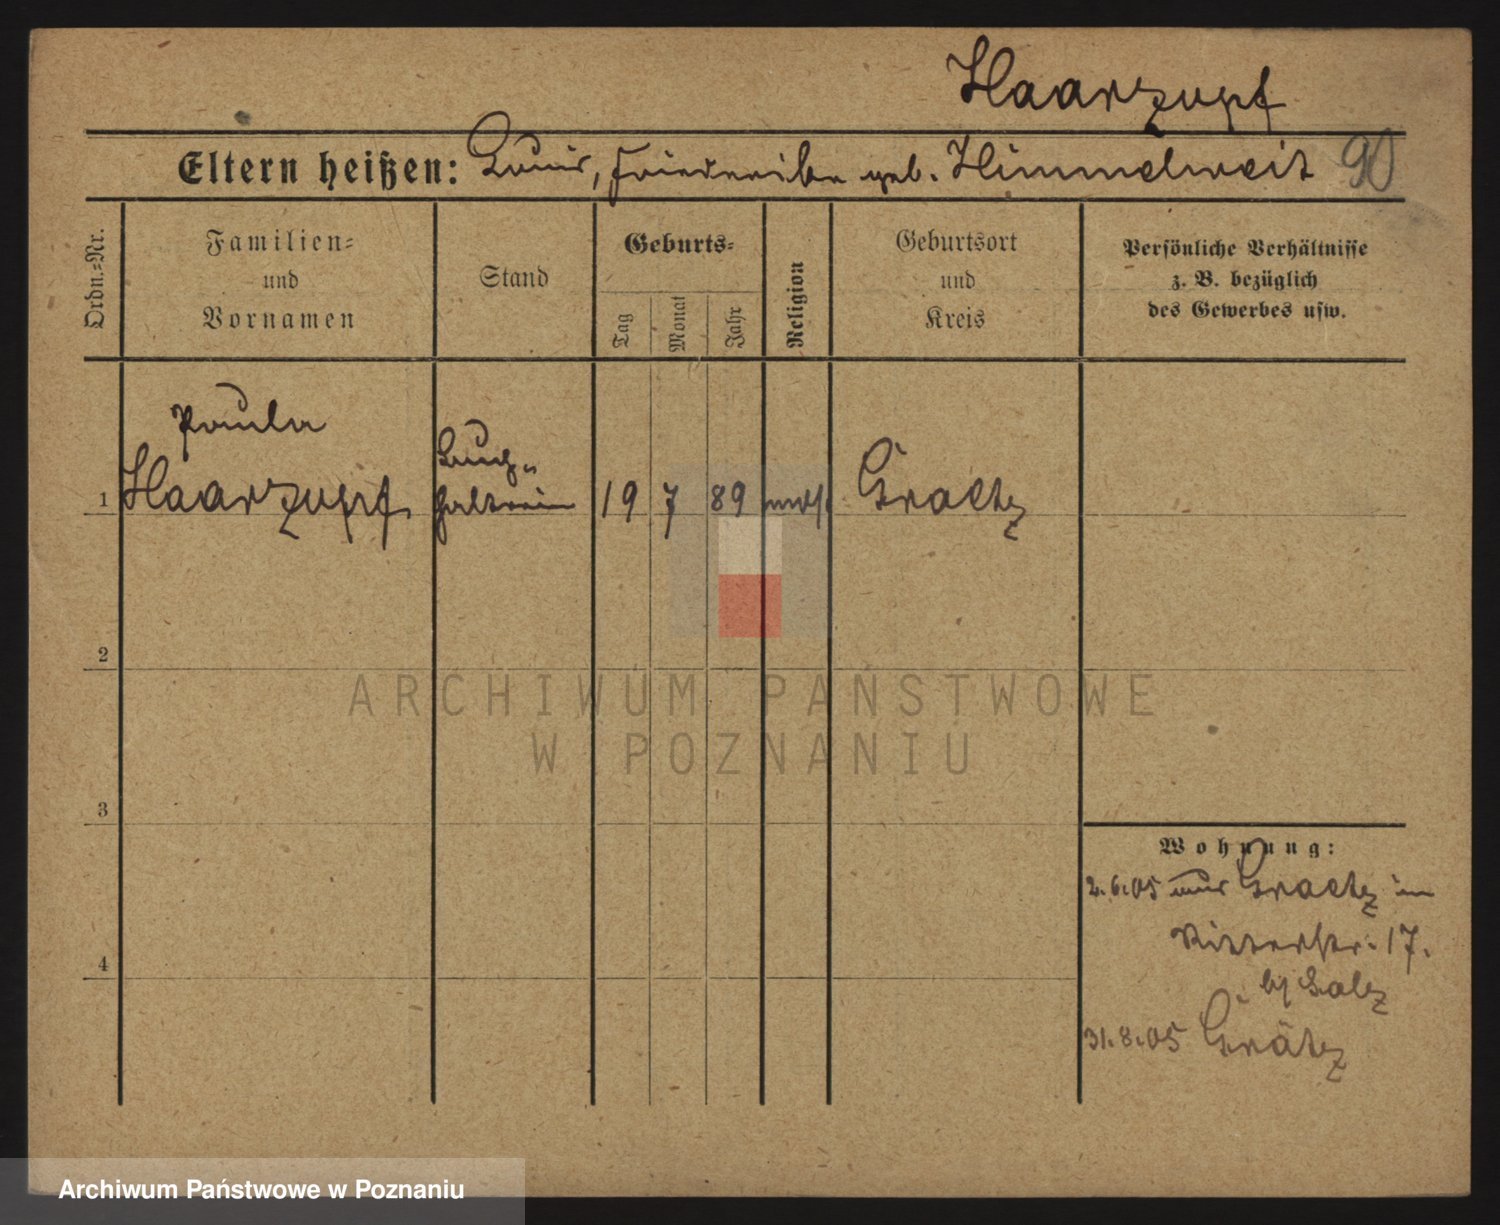 Haarzupf
Eltern heißen: Louis, Friederike geb. Himmelweit 90
Ordn.=Nr.
Familien=
und
Vornamen
Stand
Geburts=
Tag
Monat
Jahr
Religion
Geburtsort
und
Kreis
Persönliche Verhältnisse
z. B. bezüglich
des Gewerbes usw.
Paula
1 Haarzupf
Buch=
halterin
19 7 89 mos.
Graetz
2
ARCHIWUM PAŃSTWOWE
W POZNANIU
3
Wohnung:
2.6.05 Graetz in
Ritterstr. 17.
31.8.05 Grätz
4
Archiwum Państwowe w Poznaniu